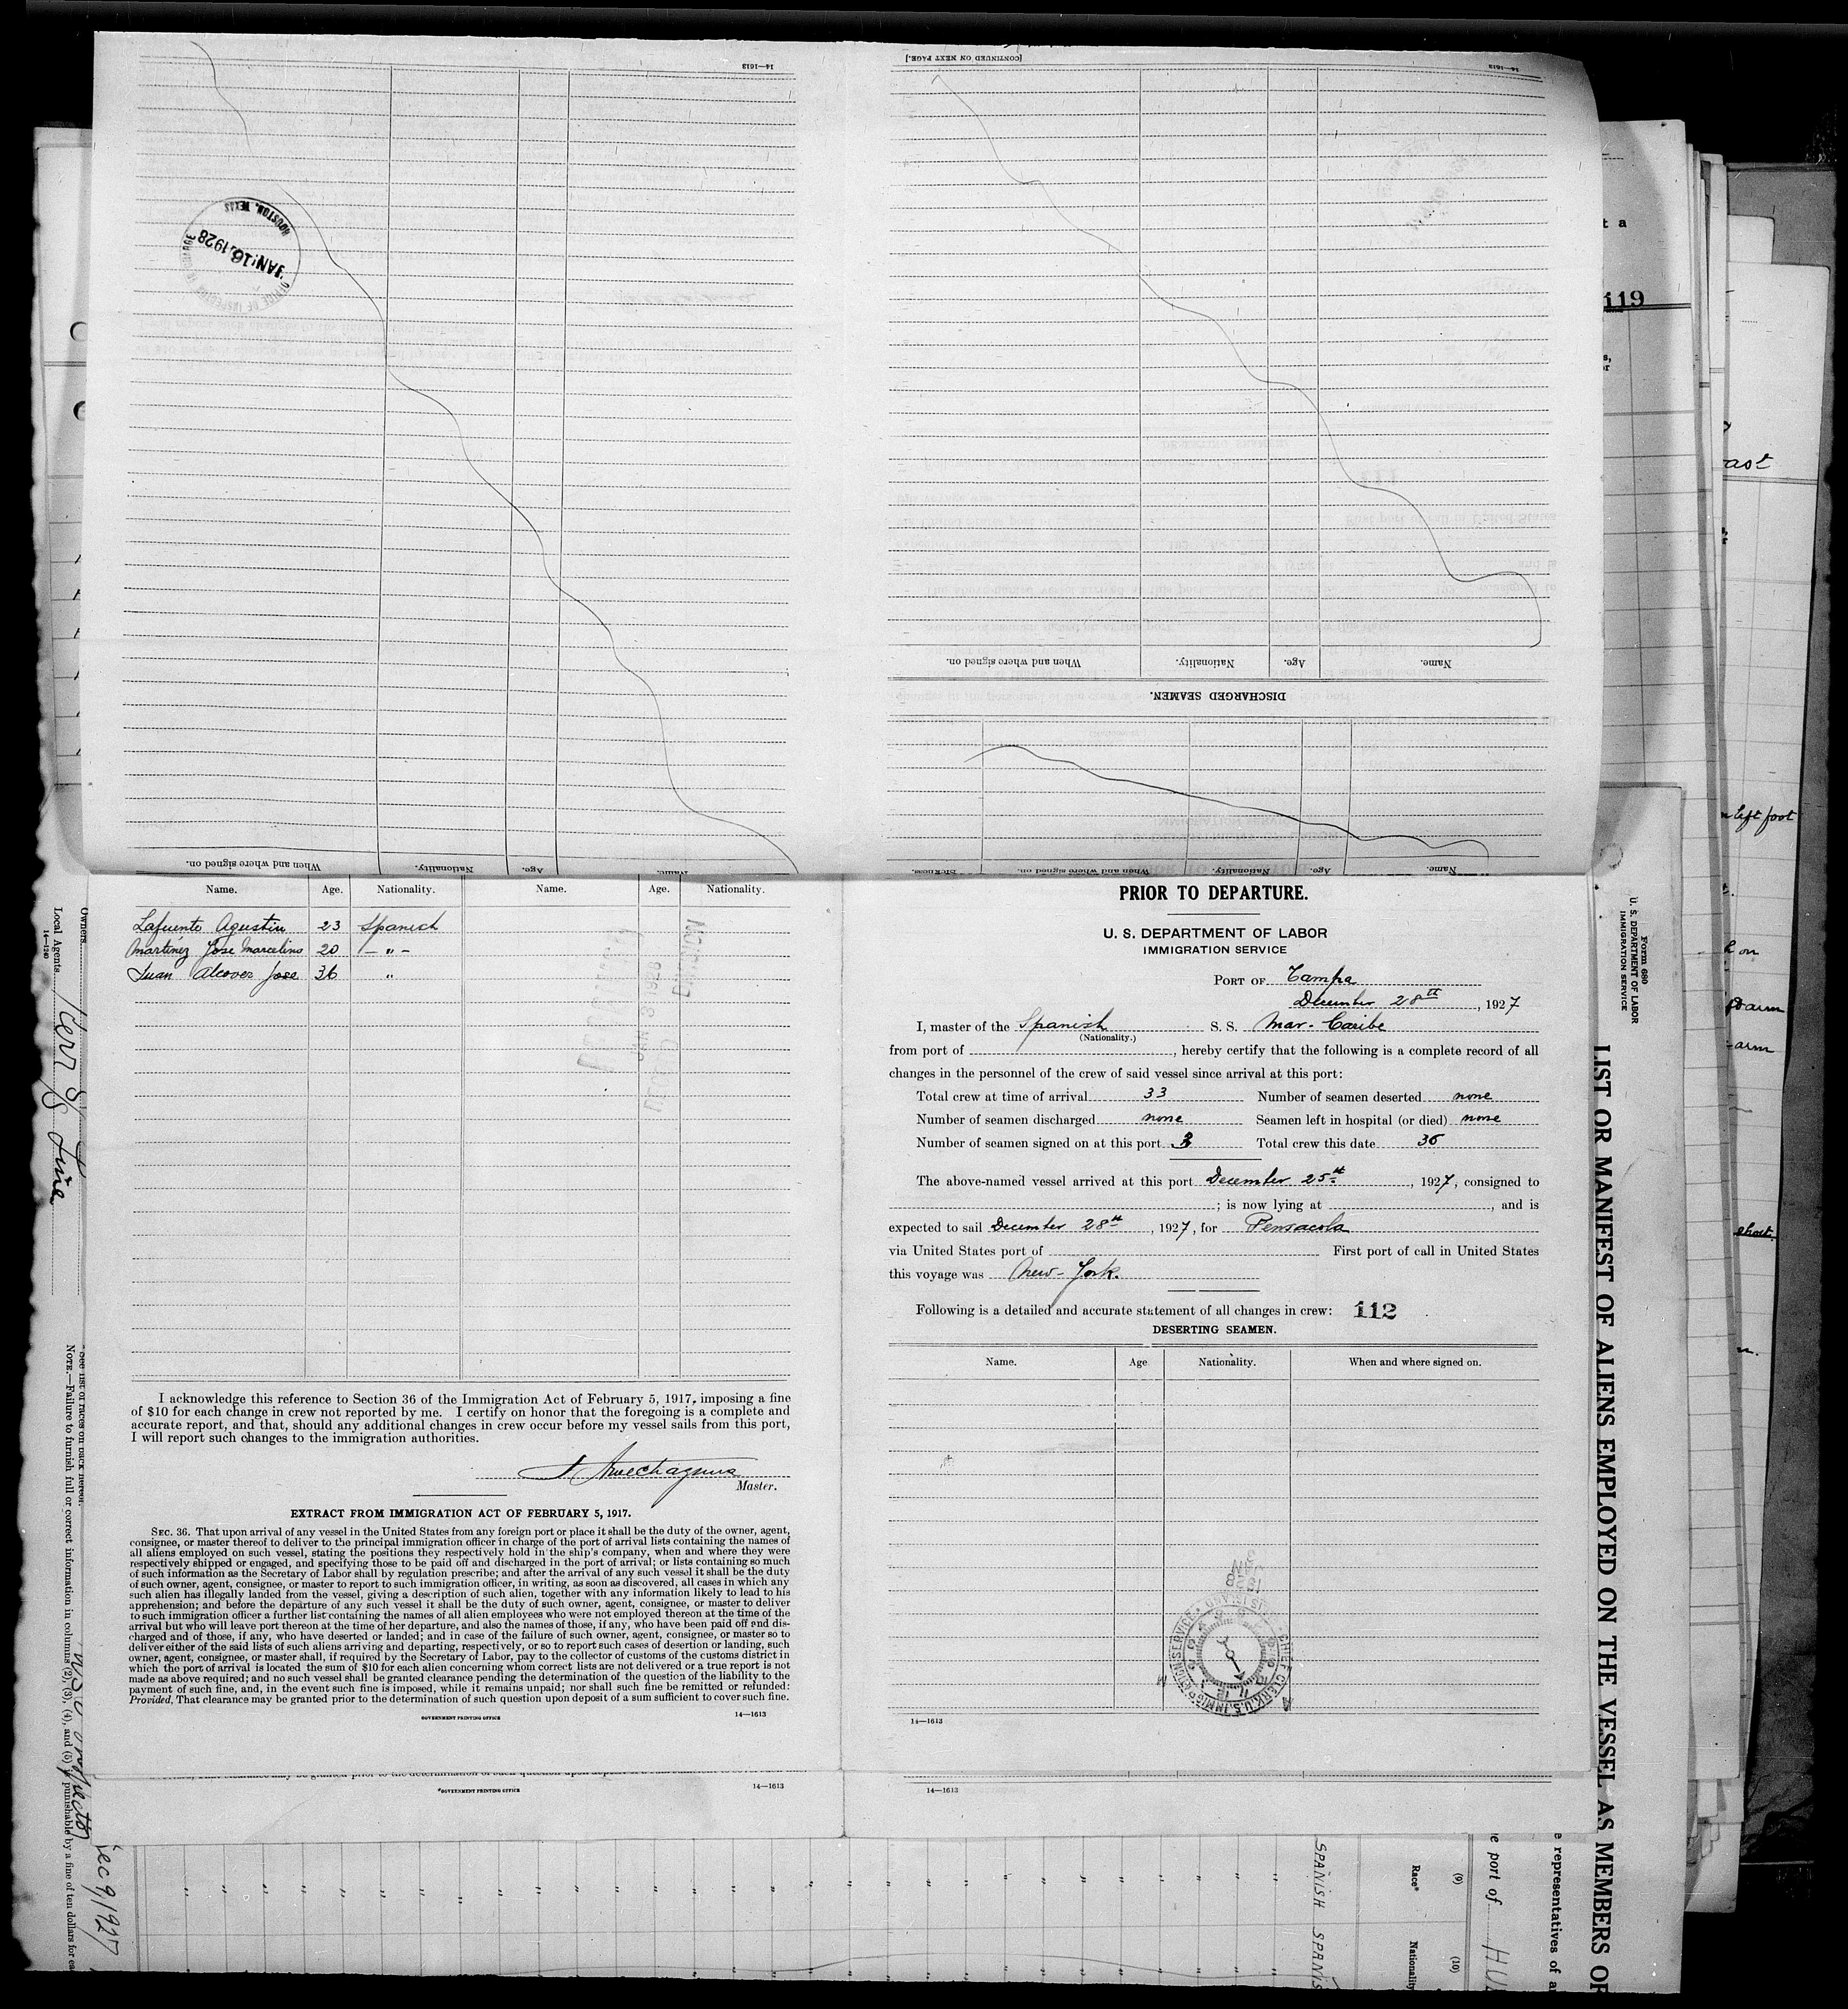 14—1613
[CONTINUED ON NEXT PAGE.]
14—1613
HOUSTON, TEXAS
JAN 16, 1928
Name. Age. Nationality. When and where signed on.
DISCHARGED SEAMEN.
Name. Age. Nationality. When and where signed on. Sickness.
Name. Age. Nationality. When and where signed on.
Name. Age. Nationality. Name. Age. Nationality.
Lafuente Agustin 23 Spanish
Martinez Jose Marcelino 20 — " —
Juan Alcover Jose 36 "
I acknowledge this reference to Section 36 of the Immigration Act of February 5, 1917, imposing a fine
of $10 for each change in crew not reported by me. I certify on honor that the foregoing is a complete and
accurate report, and that, should any additional changes in crew occur before my vessel sails from this port,
I will report such changes to the immigration authorities.
Master.
EXTRACT FROM IMMIGRATION ACT OF FEBRUARY 5, 1917.
SEC. 36. That upon arrival of any vessel in the United States from any foreign port or place it shall be the duty of the owner, agent,
consignee, or master thereof to deliver to the principal immigration officer in charge of the port of arrival lists containing the names of
all aliens employed on such vessel, stating the positions they respectively hold in the ship's company, when and where they were
respectively shipped or engaged, and specifying those to be paid off and discharged in the port of arrival; or lists containing so much
of such information as the Secretary of Labor shall by regulation prescribe; and after the arrival of any such vessel it shall be the duty
of such owner, agent, consignee, or master to report to such immigration officer, in writing, as soon as discovered, all cases in which any
such alien has illegally landed from the vessel, giving a description of such alien, together with any information likely to lead to his
apprehension; and before the departure of any such vessel it shall be the duty of such owner, agent, consignee, or master to deliver
to such immigration officer a further list containing the names of all alien employees who were not employed thereon at the time of the
arrival but who will leave port thereon at the time of her departure, and also the names of those, if any, who have been paid off and dis-
charged and of those, if any, who have deserted or landed; and in case of the failure of such owner, agent, consignee, or master so to
deliver either of the said lists of such aliens arriving and departing, respectively, or so to report such cases of desertion or landing, such
owner, agent, consignee, or master shall, if required by the Secretary of Labor, pay to the collector of customs of the customs district in
which the port of arrival is located the sum of $10 for each alien concerning whom correct lists are not delivered or a true report is not
made as above required; and no such vessel shall be granted clearance pending the determination of the question of the liability to the
payment of such fine, and, in the event such fine is imposed, while it remains unpaid; nor shall such fine be remitted or refunded:
Provided, That clearance may be granted prior to the determination of such question upon deposit of a sum sufficient to cover such fine.
GOVERNMENT PRINTING OFFICE 14—1613
GOVERNMENT PRINTING OFFICE 14—1613
PRIOR TO DEPARTURE.
U. S. DEPARTMENT OF LABOR
IMMIGRATION SERVICE
PORT OF Tampa
December 28th, 1927
I, master of the Spanish S. S. Mar-Caribe
(Nationality.)
from port of , hereby certify that the following is a complete record of all
changes in the personnel of the crew of said vessel since arrival at this port:
Total crew at time of arrival 33 Number of seamen deserted none
Number of seamen discharged none Seamen left in hospital (or died) none
Number of seamen signed on at this port 3 Total crew this date 36
The above-named vessel arrived at this port December 25th, 1927, consigned to
; is now lying at , and is
expected to sail December 28th, 1927, for Pensacola
via United States port of First port of call in United States
this voyage was New-York.
Following is a detailed and accurate statement of all changes in crew: 112
DESERTING SEAMEN.
Name. Age Nationality. When and where signed on.
CHIEF CLERK U.S. IMMIGRATION SERVICE
14—1613
14—1613
Owners
Local Agents Kerr SS Line
14—1240
NOTE.—Failure to furnish full or correct information in columns (2), (3), (4), and (5) is punishable by a fine of ten dollars for
Dec 9/1927
Form 680
U. S. DEPARTMENT OF LABOR
IMMIGRATION SERVICE
LIST OR MANIFEST OF ALIENS EMPLOYED ON THE VESSEL AS MEMBERS OF
representatives of
port of
(9) (10)
Race* Nationality
SPANISH SPANISH
119
left foot
arm
arm
short